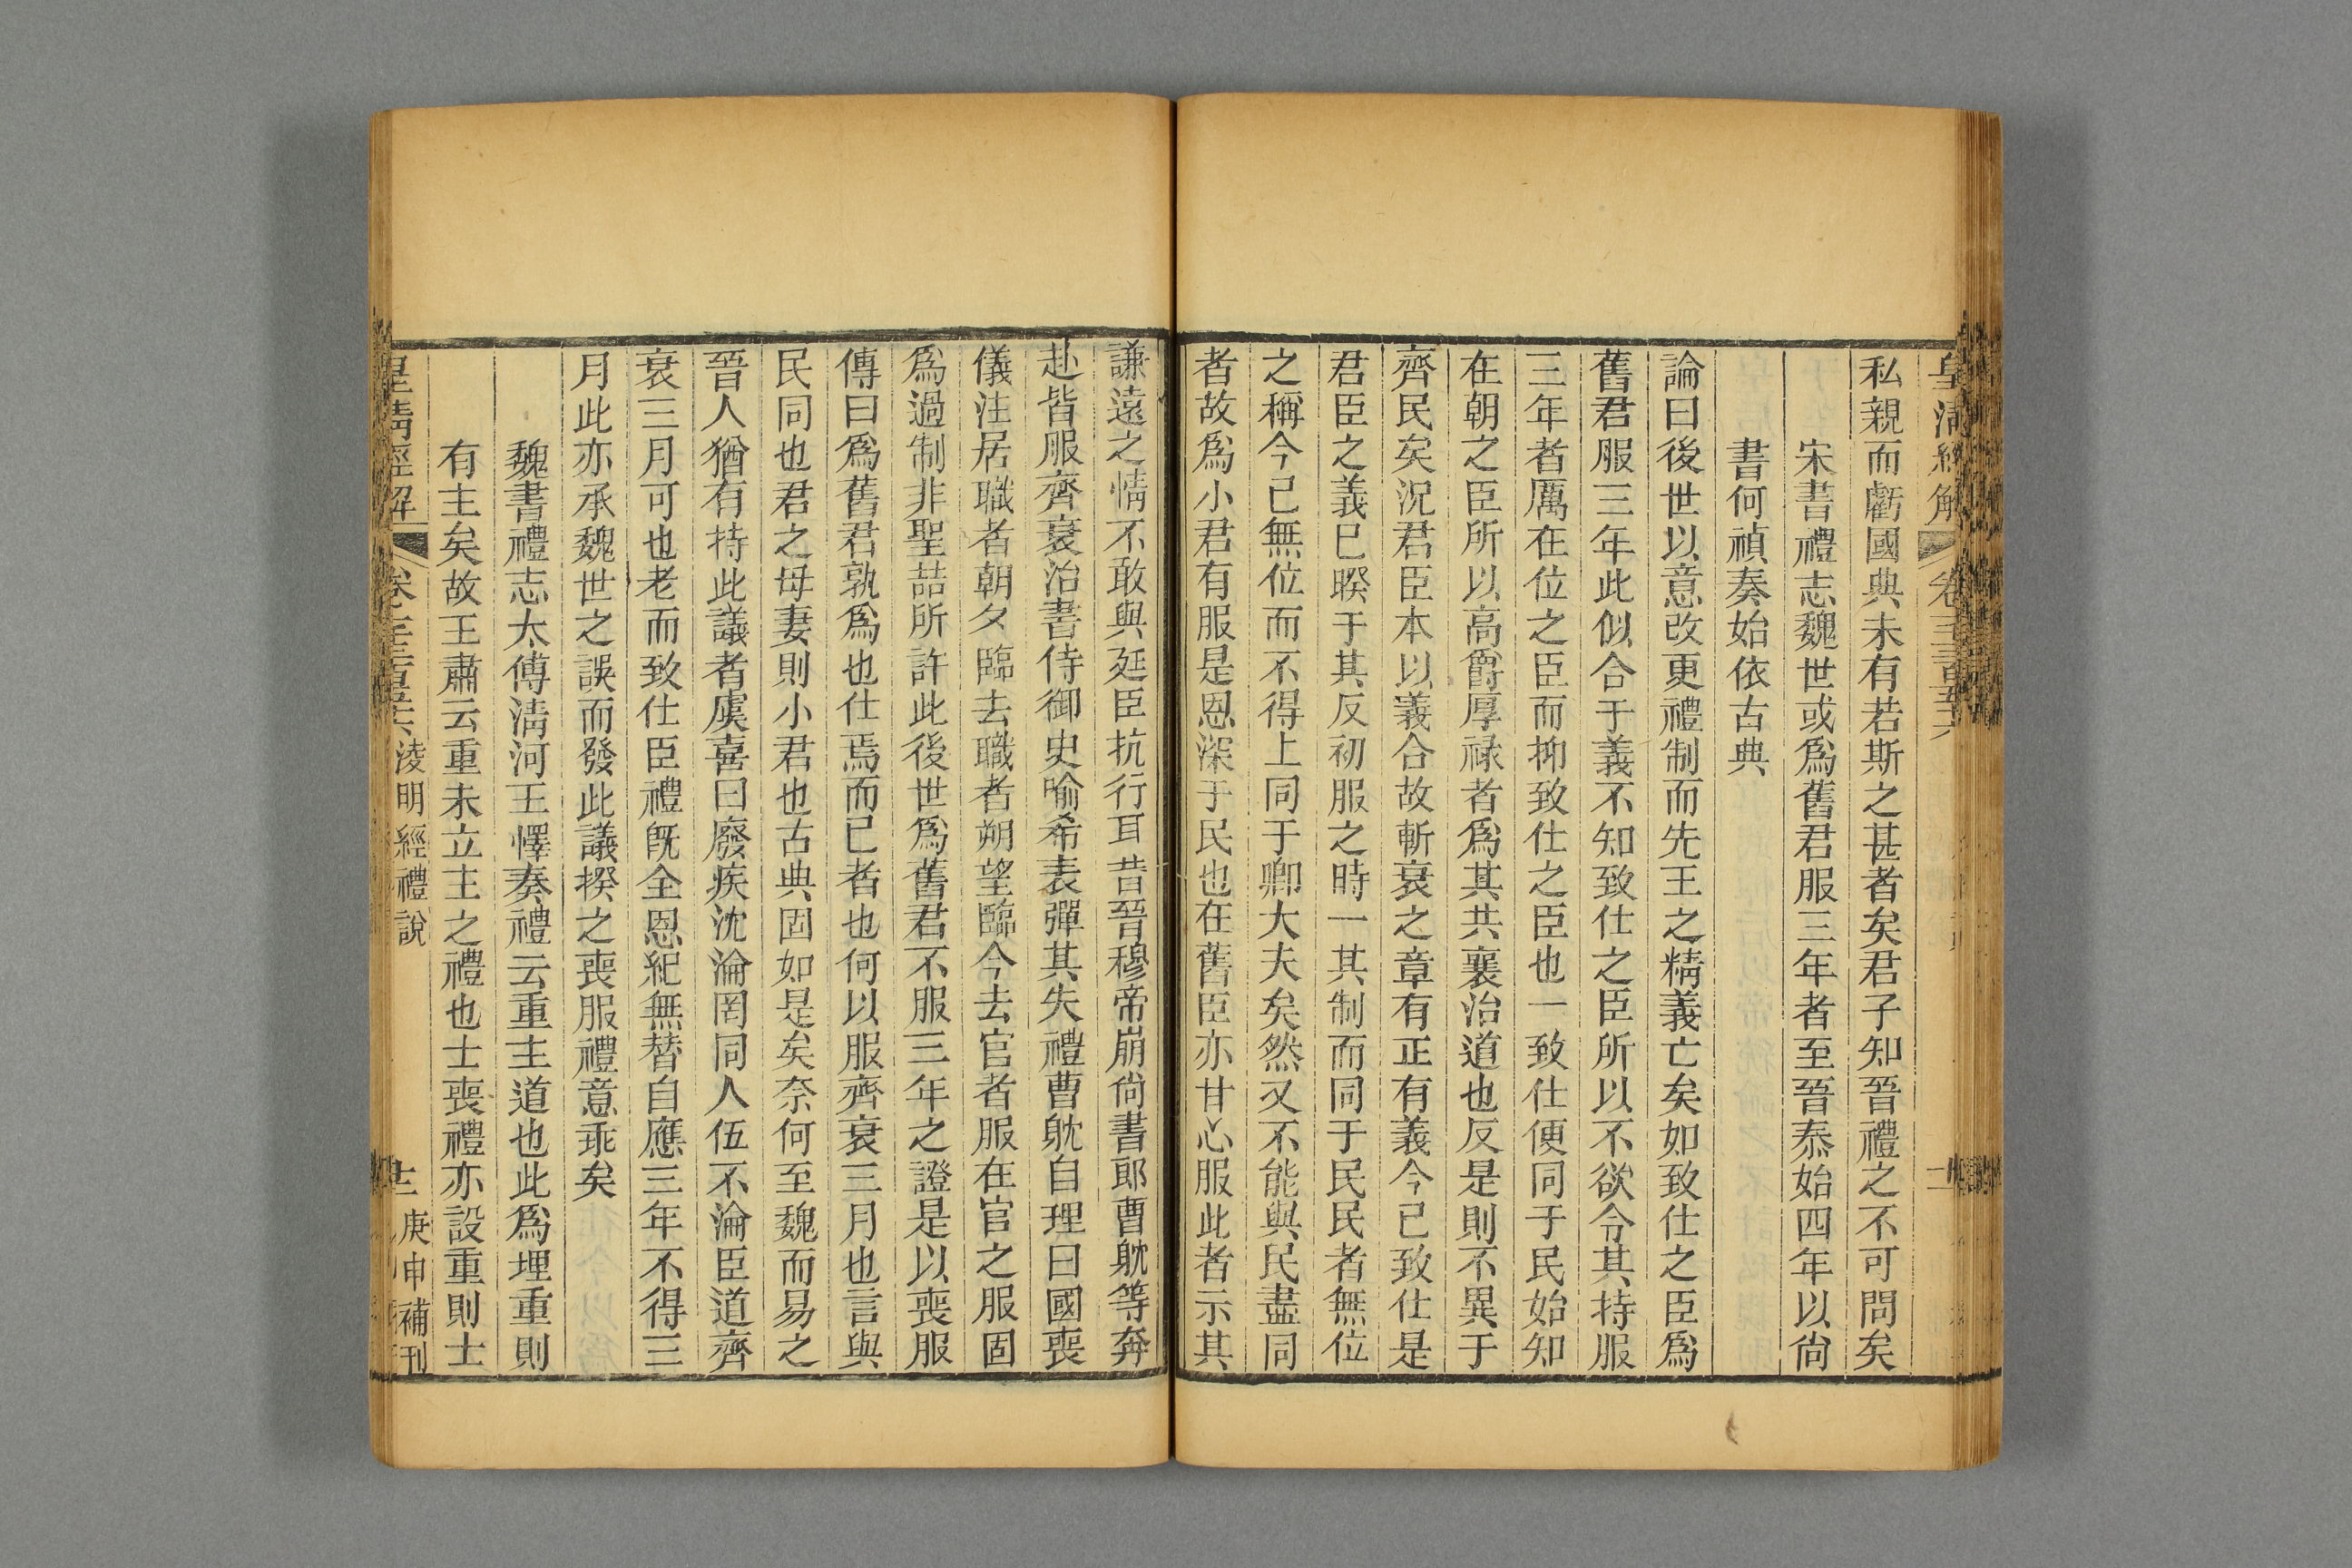 皇清經解
卷
私親而虧國典未有若斯之甚者矣君子知晉禮之不可問矣
宋書禮志魏世或爲舊君服三年者至晉泰始四年以尙
書何禎奏始依古典
論曰後世以意改更禮制而先王之精義亡矣如致仕之臣爲
舊君服三年此似合于義不知致仕之臣所以不欲令其持服
三年者厲在位之臣而抑致仕之臣也一致仕便同于民始知
在朝之臣所以高爵厚祿者爲其共襄治道也反是則不異于
齊民矣況君臣本以義合故斬衰之章有正有義今已致仕是
君臣之義已睽于其反初服之時一其制而同于民民者無位
之稱今已無位而不得上同于卿大夫矣然又不能與民盡同
者故爲小君有服是恩深于民也在舊臣亦甘心服此者示其
謙遠之情不敢與延臣抗行耳昔晉穆帝崩尙書郎曹躭等奔
赴皆服齊衰治書侍御史喻希表彈其失禮曹躭自理曰國喪
儀注居職者朝夕臨去職者朔望臨今去官者服在官之服固
爲過制非聖喆所許此後世爲舊君不服三年之證是以喪服
傳曰爲舊君孰爲也仕焉而已者也何以服齊衰三月也言與
民同也君之母妻則小君也古典固如是矣奈何至魏而易之
晉人猶有持此議者虞喜曰廢疾沈淪罔同人伍不淪臣道齊
衰三月可也老而致仕臣禮旣全恩紀無替自應三年不得三
月此亦承魏世之誤而發此議揆之喪服禮意乖矣
魏書禮志太傅淸河王懌奏禮云重主道也此爲埋重則
有主矣故王肅云重未立主之禮也士喪禮亦設重則士
皇清經解
卷
淩明經禮說
庚申補刊